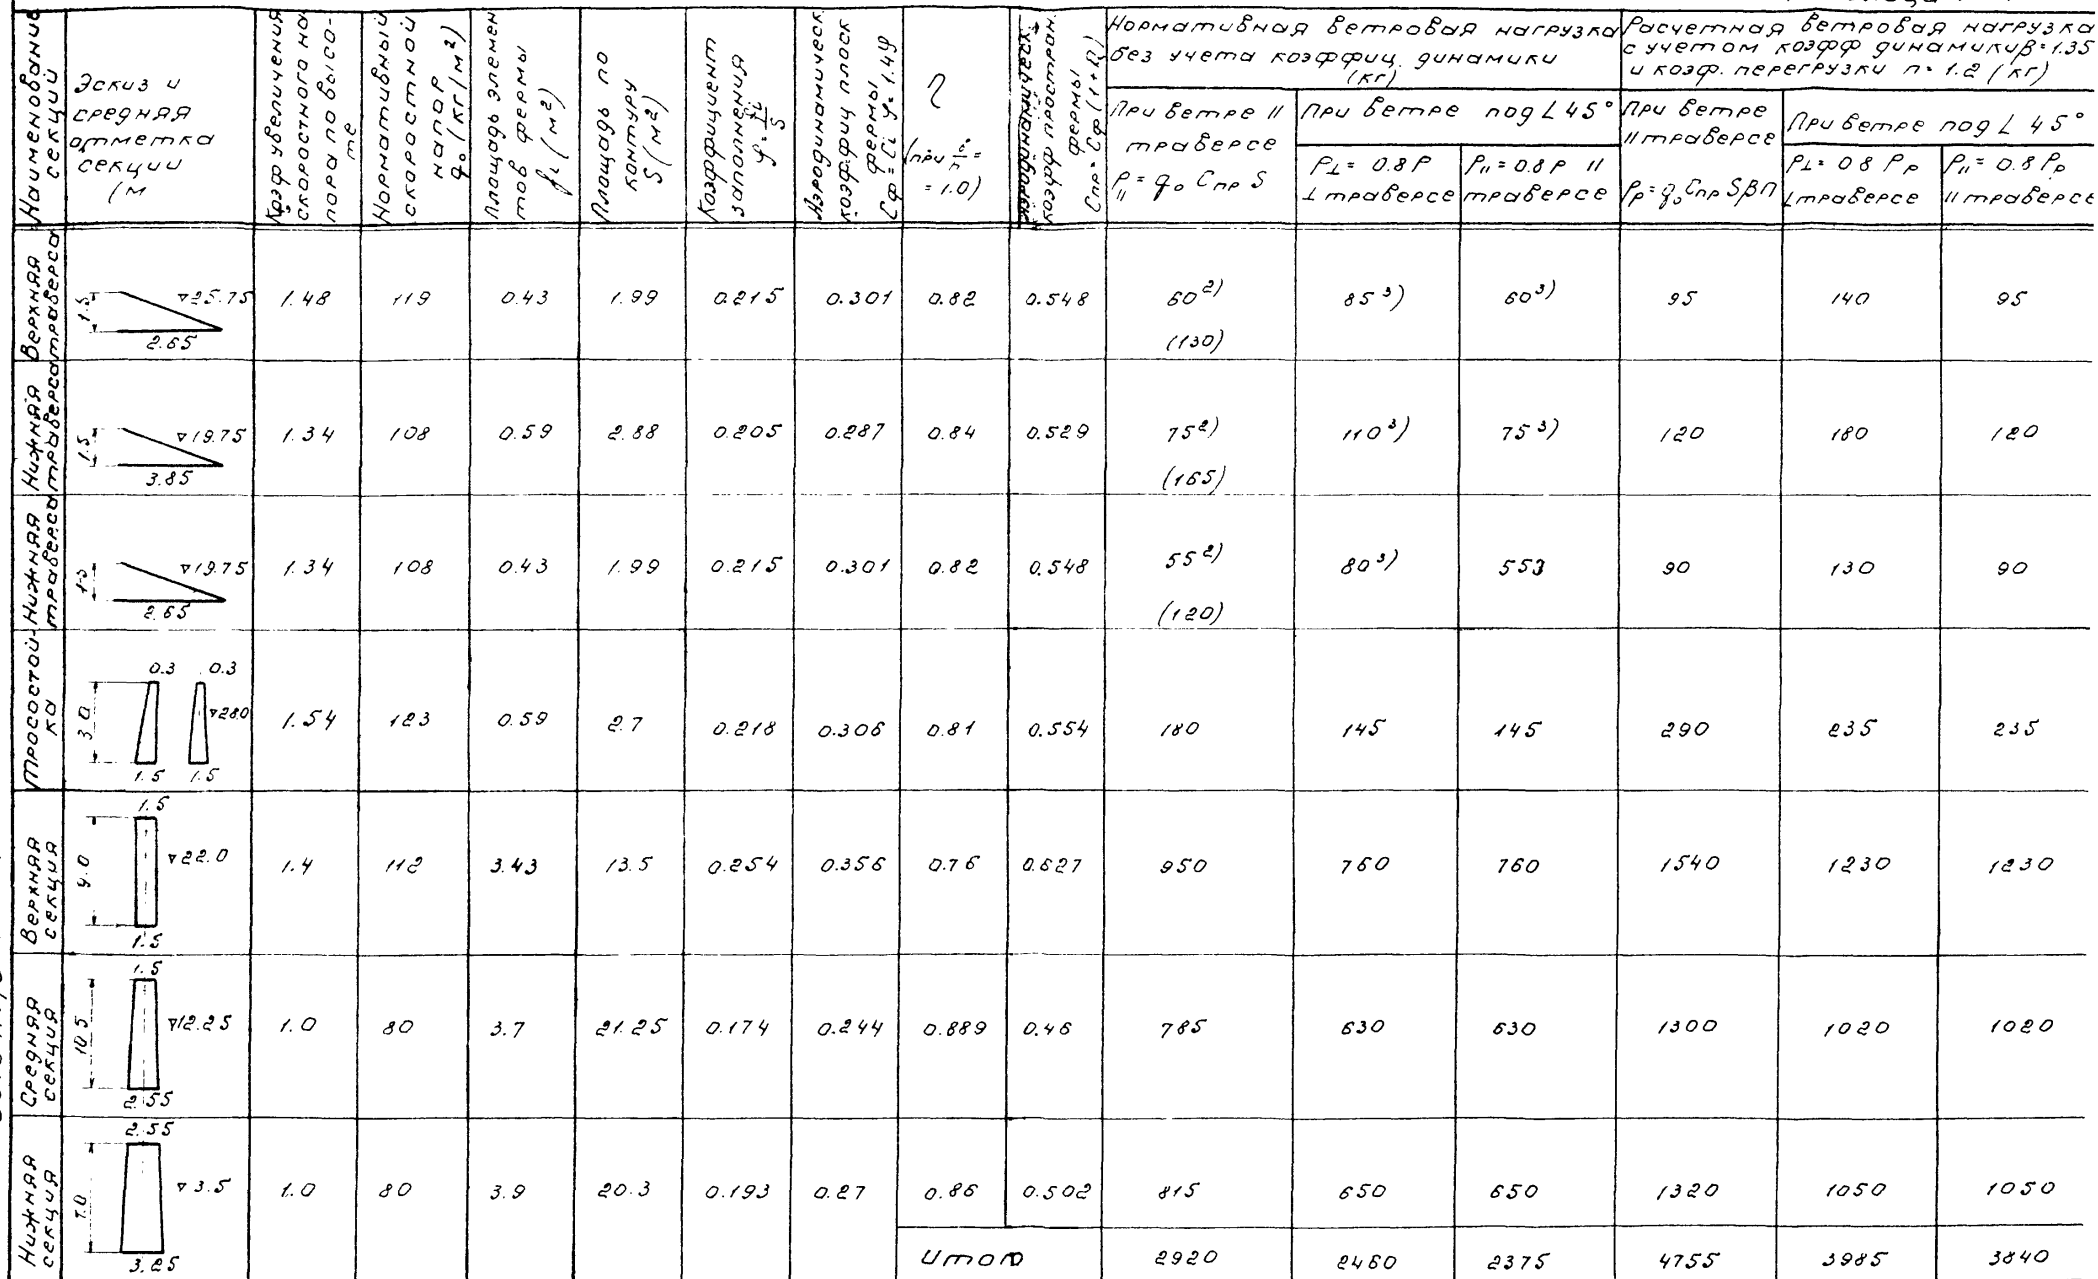 Наименование секций
Эскиз и средняя отметка секции (м
Коэф увеличения скоростного напора по высоте
Нормативный скоростной напор q₀ (кг/м²)
Площадь элементов фермы fᵢ (м²)
Площадь по контуру S (м²)
Коэффициент заполнения φ = fᵢ/S
Аэродинамическ. коэффиц плоск фермы Cφ = Cᵢ φ = 1.4φ
η (при в/h = = 1.0)
Аэродинамическ. коэфф простран. фермы Cпр = Cφ (1+η)
Нормативная ветровая нагрузка без учета коэффиц. динамики (кг)
При ветре || траверсе
P|| = q₀ Cпр S
При ветре под ∠ 45°
P⊥ = 0.8P ⊥ траверсе
P|| = 0.8P || траверсе
Расчетная ветровая нагрузка с учетом коэфф динамики β = 1.35 и коэф. перегрузки n = 1.2 (кг)
При ветре || траверсе
Pр = q₀ Cпр Sβn
При ветре под ∠ 45°
P⊥ = 0.8 Pр ⊥ траверсе
P|| = 0.8 Pр || траверсе
Верхняя траверса
1.5 ▽25.75 2.65
1.48 119 0.43 1.99 0.215 0.301 0.82 0.548 60²) (130) 85³) 60³) 95 140 95
Нижняя траверса
1.5 ▽19.75 3.85
1.34 108 0.59 2.88 0.205 0.287 0.84 0.529 75²) (165) 110³) 75³) 120 180 120
Нижняя траверса
▽19.75 2.65
1.34 108 0.43 1.99 0.215 0.301 0.82 0.548 55²) (120) 80³) 553 90 130 90
Тросостойка
0.3 0.3 3.0 ▽28.0 1.5 1.5
1.54 123 0.59 2.7 0.218 0.306 0.81 0.554 180 145 145 290 235 235
Верхняя секция
1.5 9.0 ▽22.0 1.5
1.4 112 3.43 13.5 0.254 0.356 0.76 0.627 950 760 760 1540 1230 1230
Средняя секция
1.5 10.5 ▽12.25 2.55
1.0 80 3.7 21.25 0.174 0.244 0.889 0.46 785 630 630 1300 1020 1020
Нижняя секция
2.55 7.0 ▽3.5 3.25
1.0 80 3.9 20.3 0.193 0.27 0.86 0.502 815 650 650 1320 1050 1050
Итого 2920 2460 2375 4755 3985 3840